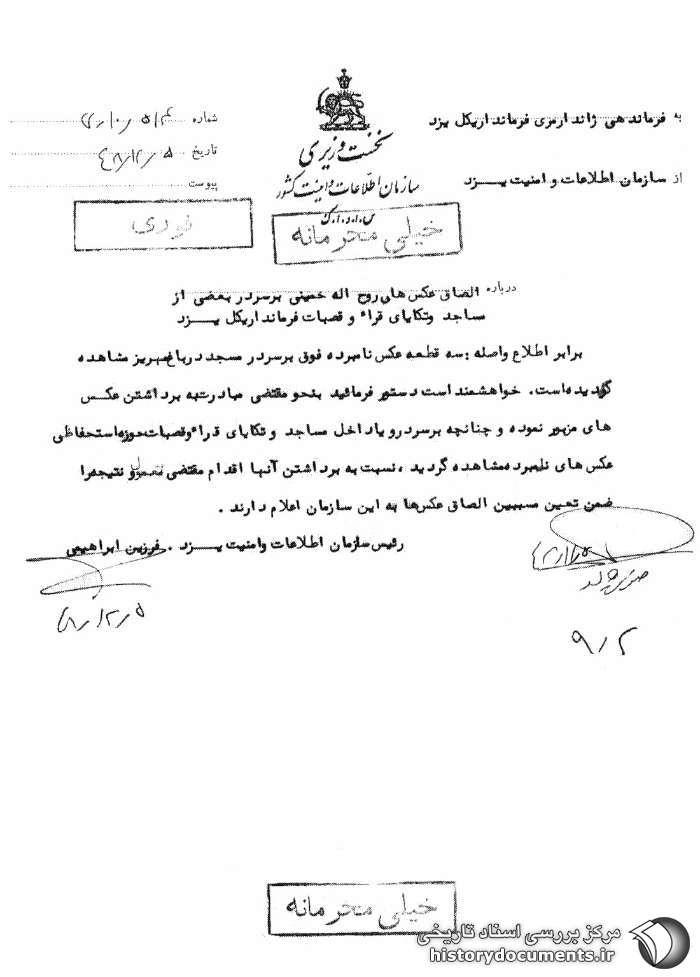 به فرماندهی ژاندارمری فرمانداریکل یزد
از سازمان اطلاعات و امنیت یــزد
نخست وزیری
سازمان اطلاعات و امنیت کشور
س.ا.و.ا.ک
شماره
تاریخ ۴۸/۱۲/۵
پیوست
خیلی محرمانه
فوری
درباره الصاق عکس های روح اله خمینی برسردر بعضی از
مساجد وتکایای قراء و قصبات فرمانداریکل یــزد
برابر اطلاع واصله : سه قطعه عکس نامبرده فوق برسردر مسجد درباغ مهریز مشاهده
گردیده است. خواهشمند است دستور فرمائید بنحو مقتضی مبادرت به برداشتن عکــس
های مزبور نموده و چنانچه برسردرو یاداخل مساجد و تکایای قراء وقصبات حوزه استحفاظی
عکس های نامبرده مشاهده گردید ، نسبت به برداشتن آنها اقدام مقتضی معمول و نتیجه را
ضمن تعیین مسببین الصاق عکس‌ها به این سازمان اعلام دارند .
رئیس سازمان اطلاعات وامنیت یــزد . فرزین ابراهیمی
۴۸/۱۲/۵
۹/۲
خیلی محرمانه
مرکز بررسی اسناد تاریخی
historydocuments.ir